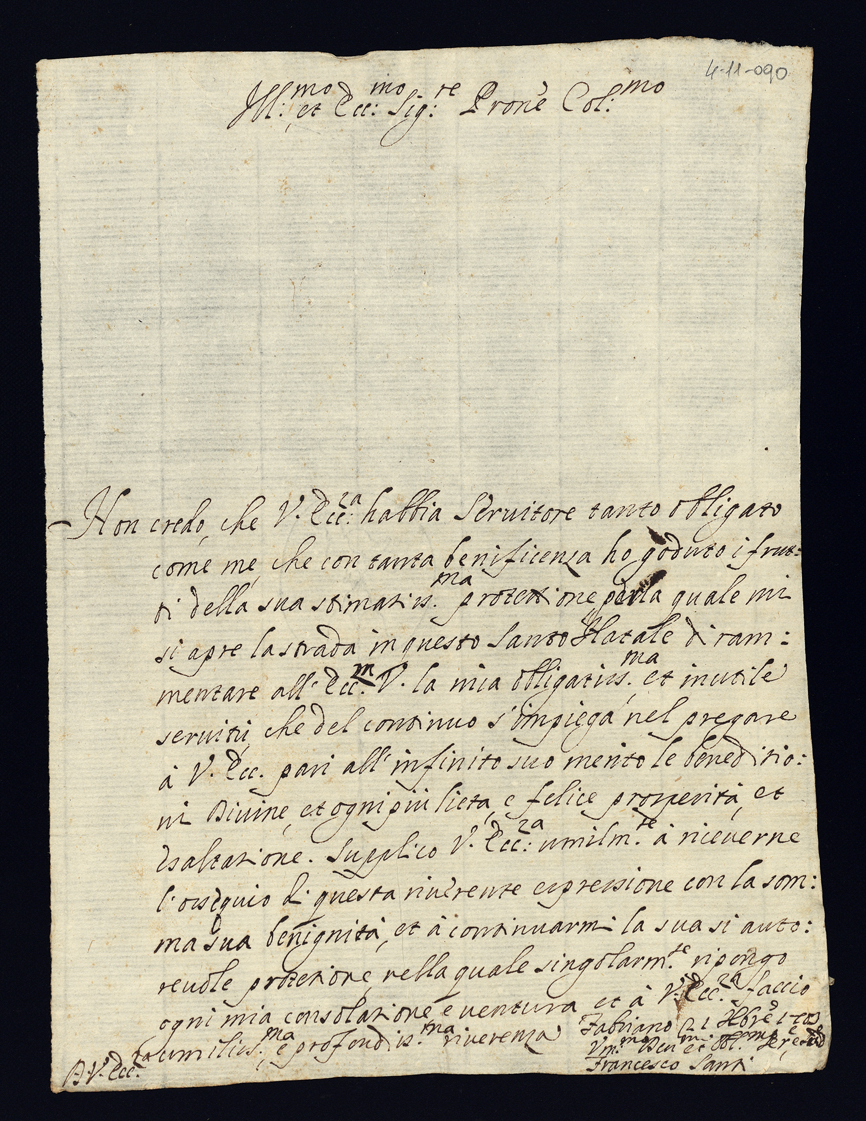 4-11-090
Ill:mo et Ecc:mo Sig:re Prone Col:mo
Non credo, che V. Ecc:za habbia Servitore tanto obligato
come me, che con tanta benificenza ho goduto i frut:
ti della sua stimatiss.ma protettione per la quale mi
si apre la strada in questo Santo Natale di ram:
mentare all' Ecc. V. la mia obligatiss.ma et inutile
servitù, che del continuo s'impiega nel pregare
à V. Ecc. pari all' infinito suo merito le beneditio:
ni Divine, et ogni più lieta, e felice prosperità, et
Esaltatione. Supplico V. Ecc:za umilm.te à riceverne
l'ossequio di questa riverente espressione con la som:
ma sua benignità, et à continuarmi la sua si auto:
revole protetione, nella quale singolarm.te ripongo
ogni mia consolatione e ventura et à V. Ecc.za faccio
umiliss.ma e profondiss.ma riverenza Fabriano 21
D V. Ecc.za
Francesco Santi